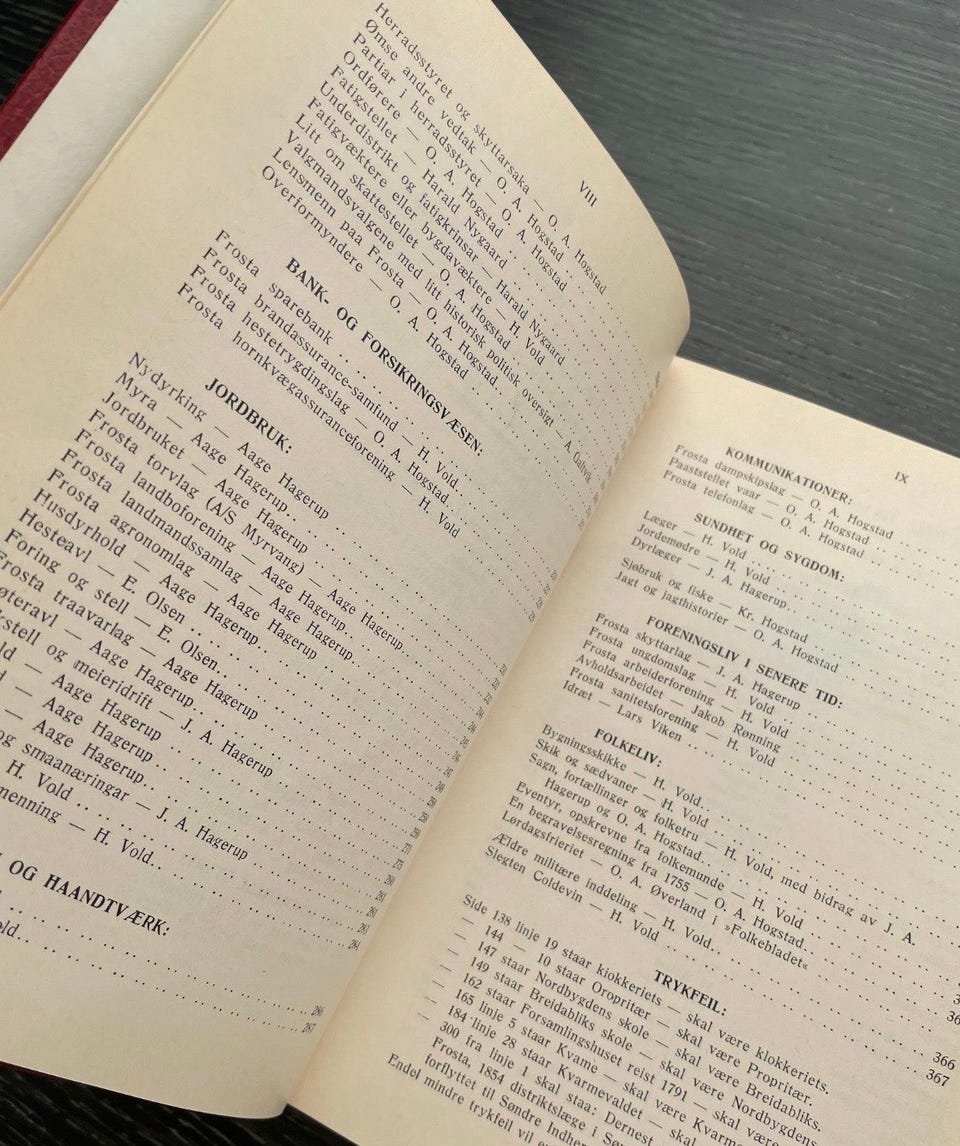 VIII
Herradsstyret og skyttarsaka — O. A. Hogstad
Ømse andre vedtak — O. A. Hogstad
Partiar i herradsstyret — O. A. Hogstad
Ordførere — O. A. Hogstad
Fatigstellet — Harald Nygaard
Underdistrikt og fatigkrinsar — Harald Nygaard
Fatigvæktere eller bygdavæktere — H. Vold
Litt om skattestellet — O. A. Hogstad
Valgmandsvalgene med litt historisk politisk oversigt — A. Galtvik
Lensmenn paa Frosta — O. A. Hogstad
Overformyndere — O. A. Hogstad
BANK- OG FORSIKRINGSVÆSEN:
Frosta sparebank
Frosta brandassurance-samfund — H. Vold
Frosta hestetrygdingslag — O. A. Hogstad
Frosta hornkvægassuranceforening — H. Vold
JORDBRUK:
Nydyrking — Aage Hagerup
Myra — Aage Hagerup
Jordbruket — Aage Hagerup
Frosta torvlag (A/S Myrvang) — Aage Hagerup
Frosta landboforening — Aage Hagerup
Frosta landmandssamlag — Aage Hagerup
Frosta agronomlag — Aage Hagerup
Husdyrhold — Aage Hagerup
Hesteavl — E. Olsen
Foring og stell — E. Olsen
Frosta traavarlag — Aage Hagerup
øteravl — Aage Hagerup
stell og meieridrift — J. A. Hagerup
ld — Aage Hagerup
— Aage Hagerup
— Aage Hagerup
og smaanæringar — J. A. Hagerup
H. Vold
menning — H. Vold
OG HAANDTVÆRK:
286
old
287
IX
KOMMUNIKATIONER:
Frosta dampskipslag — O. A. Hogstad
Paaststellet vaar — O. A. Hogstad
Frosta telefonlag — O. A. Hogstad
SUNDHET OG SYGDOM:
Læger — H. Vold
Jordemødre — H. Vold
Dyrlæger — J. A. Hagerup
Sjøbruk og fiske — Kr. Hogstad
Jagt og jagthistorier — O. A. Hogstad
FORENINGSLIV I SENERE TID:
Frosta skyttarlag — J. A. Hagerup
Frosta ungdomslag — H. Vold
Frosta arbeiderforening — H. Vold
Avholdsarbeidet — Jakob Rønning
Frosta sanitetsforening — H. Vold
Idræt — Lars Viken
FOLKELIV:
Bygningsskikke — H. Vold
Skik og sædvaner — H. Vold
Sagn, fortællinger og folketru — H. Vold, med bidrag av J. A.
Hagerup og O. A. Hogstad
Eventyr, opskrevne fra folkemunde — H. Vold
En begravelsesregning fra 1755 — O. A. Hogstad
Lørdagsfrieriet — O. A. Øverland i »Folkebladet«
Ældre militære inddeling — H. Vold 366
Slegten Coldevin — H. Vold 367
TRYKFEIL:
Side 138 linje 19 staar kiokkeriets — skal være klokkeriets.
— 144 — 10 staar Oropritær — skal være Propritær.
— 147 staar Nordbygdens skole — skal være Breidabliks.
— 149 staar Breidabliks skole — skal være Nordbygdens
— 162 staar Forsamlingshuset reist 1791 — skal være
— 165 linje 5 staar Kvame — skal være Kvarme
— 184 linje 28 staar Kvarmevaldet — skal
— 300 fra linje 1 skal staa: Dernest
Frosta, 1854 distriktslæge i Sø
forflyttet til Søndre Indher
Endel mindre trykfeil vil